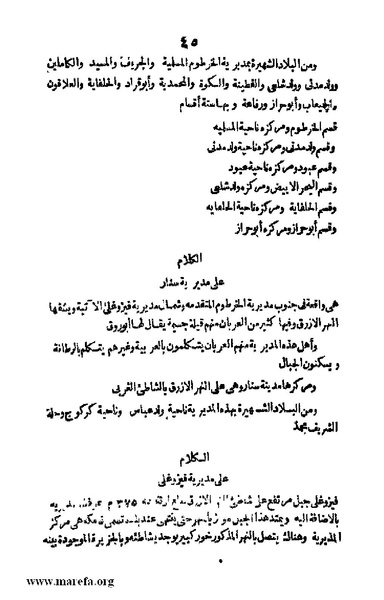 ٤٥
ومن البلاد الشهيرة بمديرية الخرطوم المسلمية والجريف والمسيد والكاملين
وولد مدنى وولد شلعى والقطينة والسكوة والمحمدية وأبو قراد والحلفاية والعلاقون
والجيعاب وأبو حراز ورفاعة وبها ستة أقسام
قسم الخرطوم ومركزه ناحية المسلميه
وقسم ولد مدنى ومركزه ناحية ولد مدنى
وقسم عبود ومركزه ناحية عبود
وقسم البحر الابيض ومركزه ولد شلعى
وقسم الحلفاية ومركزه ناحية الحلفايه
وقسم أبو حراز ومركزه أبو حراز
الكلام
على مديرية سنار
هى واقعة فى جنوب مديرية الخرطوم المتقدمه وشمال مديرية فيزوغلى الآتية ويشقها
النهر الازرق وفيها كثير من العربان منهم قبيلة جسيمة يقال لها أبو روق
وأهل هذه المديرية منهم العربان يتكلمون بالعربية وغيرهم يتكلم بالرطانة
ويسكنون الجبال
ومركزها مدينة سنار وهى على النهر الازرق بالشاطئ الغربى
ومن البلاد الشهيرة بهذه المديرية ناحية ولد عباس وناحية كركوج وحلة
الشريف محمد
الكلام
على مديرية فيزوغلى
فيزوغلى جبل مرتفع على شاطئ النهر الازرق يبلغ ارتفاعه ٣٧٥ م
بالاضافة اليه ويمتد هذا الجبل حتى ينتهى عند بلدة تسمى فامكه هى مركز
المديرية وهناك يتصل بالنهر المذكور خور كبير يوجد بشاطئه وبالجزيرة الموجودة بينه
www.marefa.org